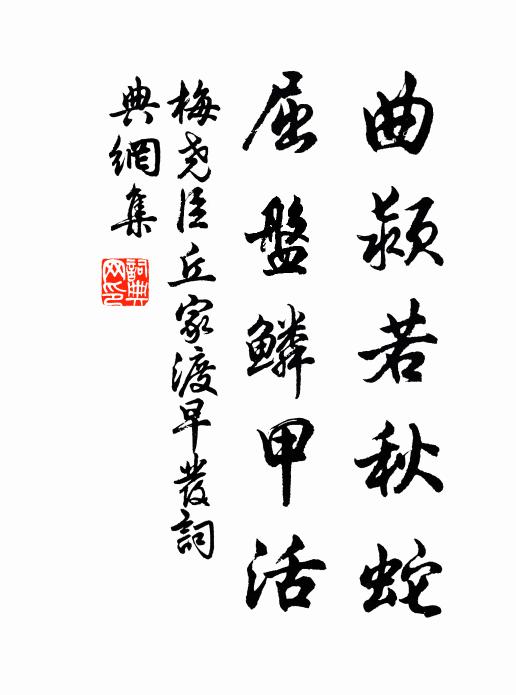 曲潁若秋蛇
屈盤鱗甲活
梅堯臣丘家渡早發詞
典網集
詞典
网印